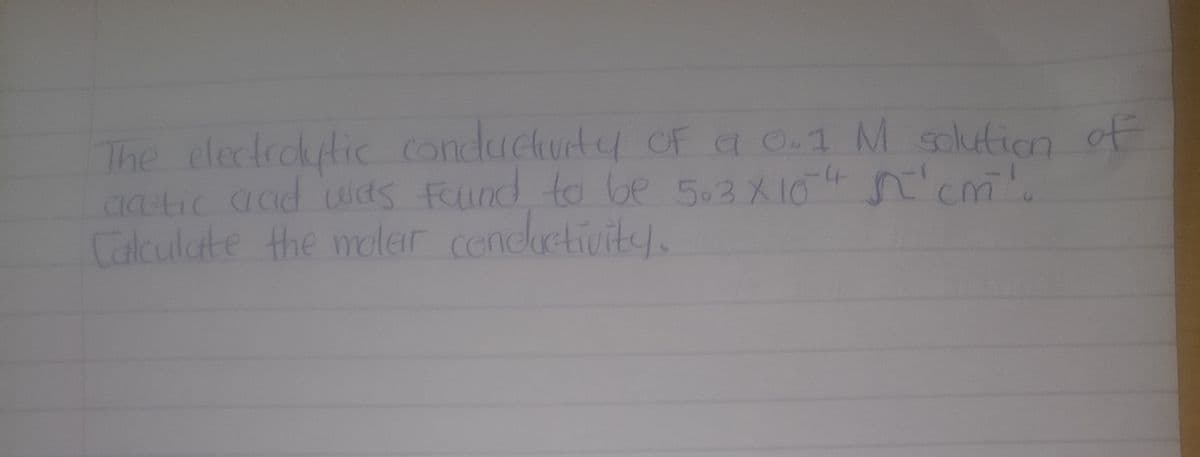 The electrolytic conductivity of a 0.1 M solution of
acetic acid was found to be 5.3 X 10⁻⁴ Ω⁻¹cm⁻¹.
Calculate the molar conductivity.